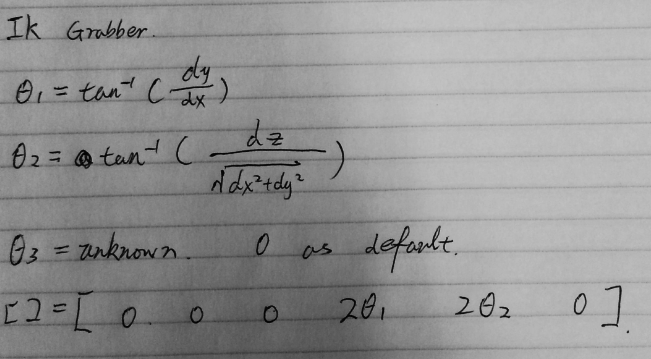 Ik Grabber.
θ₁ = tan⁻¹ ( dy/dx )
θ₂ = tan⁻¹ ( dz/√dx²+dy² )
θ3 = unknown. 0 as default.
[ ] = [ 0. 0 0 2θ₁ 2θ₂ 0 ].